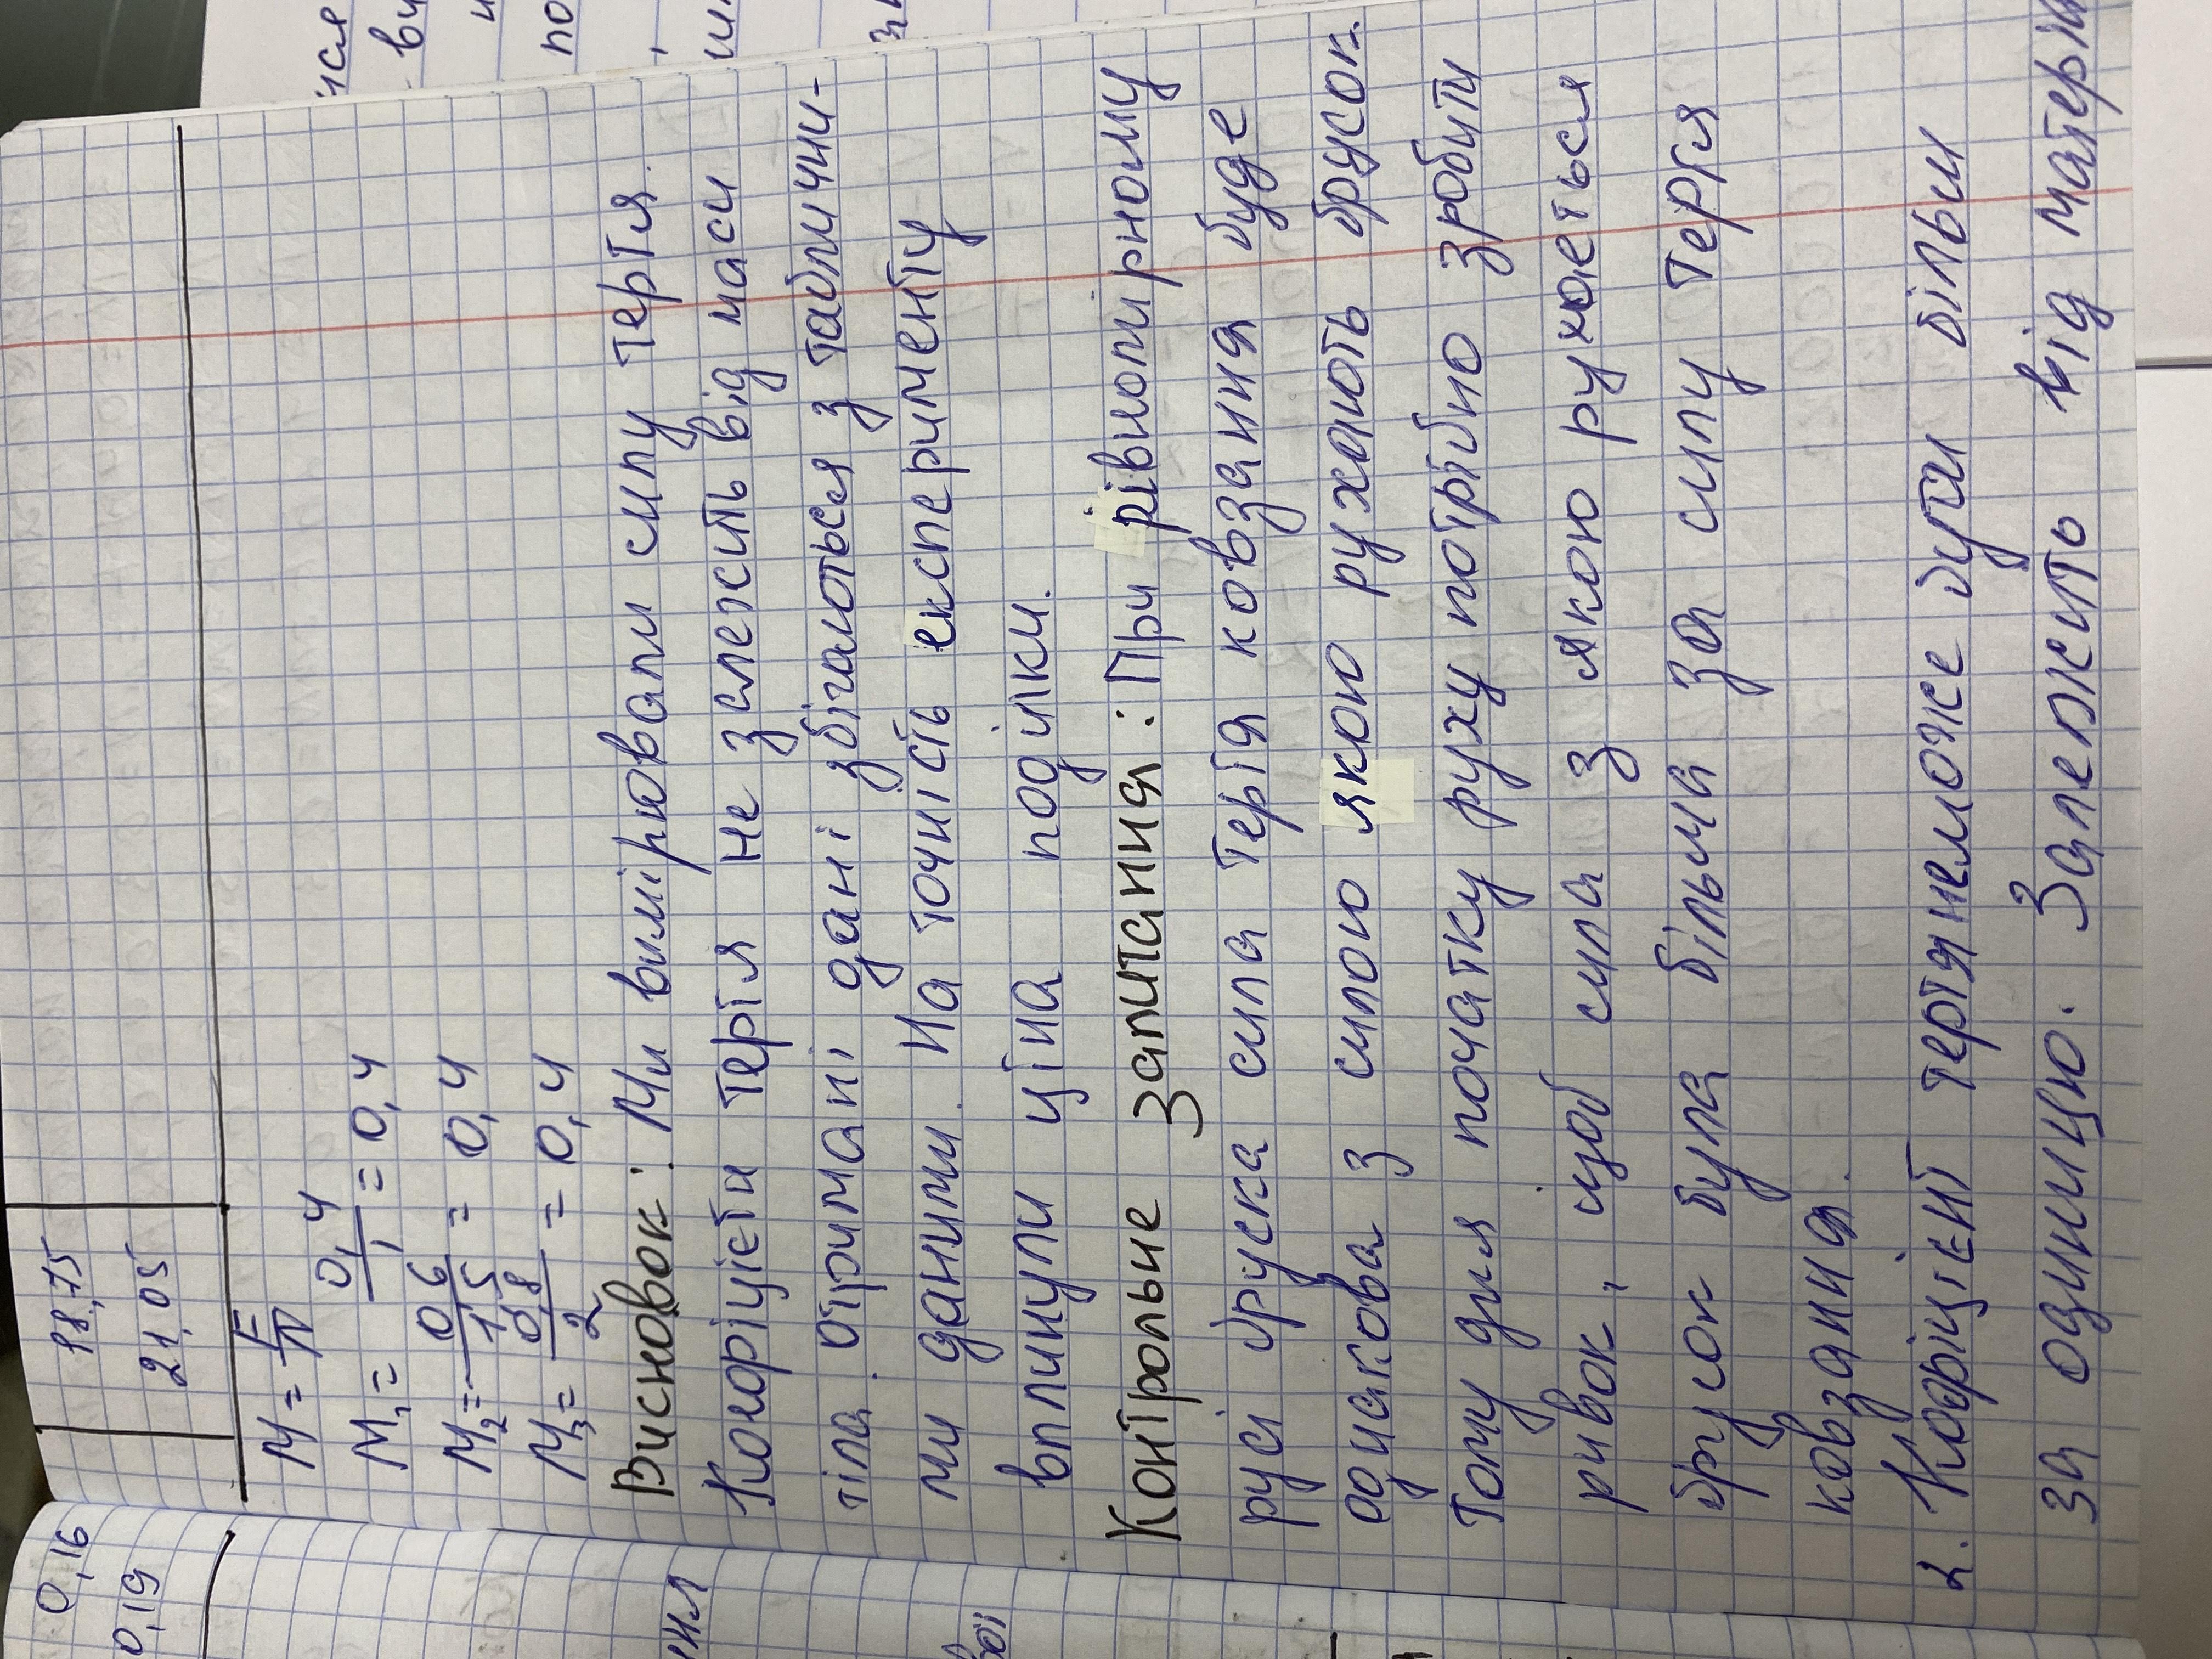 0,16
0,19
18,75
21,05
M = F/N
M₁ = 0,4/1 = 0,4
M₂ = 0,6/1,5 = 0,4
M₃ = 0,8/2 = 0,4
Висновок: Ми вимірювали силу тертя.
Коофіцієти тертя не залежить від маси
тіла. Отримані дані збігаються з табличи-
ми даними. На точність експерименту
вплинули ціна поділки.
Контрольне Запитання: При рівномірному
русі бруска сила тертя ковзання буде
однакова з силою якою рухають брусок.
Тому для початку руху потрібно зробити
ривок, щоб сила з якою рухається
брусок була більша за силу тертя
ковзання.
2. Коофіцієнт тертя неможе бути більш
за одиницю. Залежить від матеріа